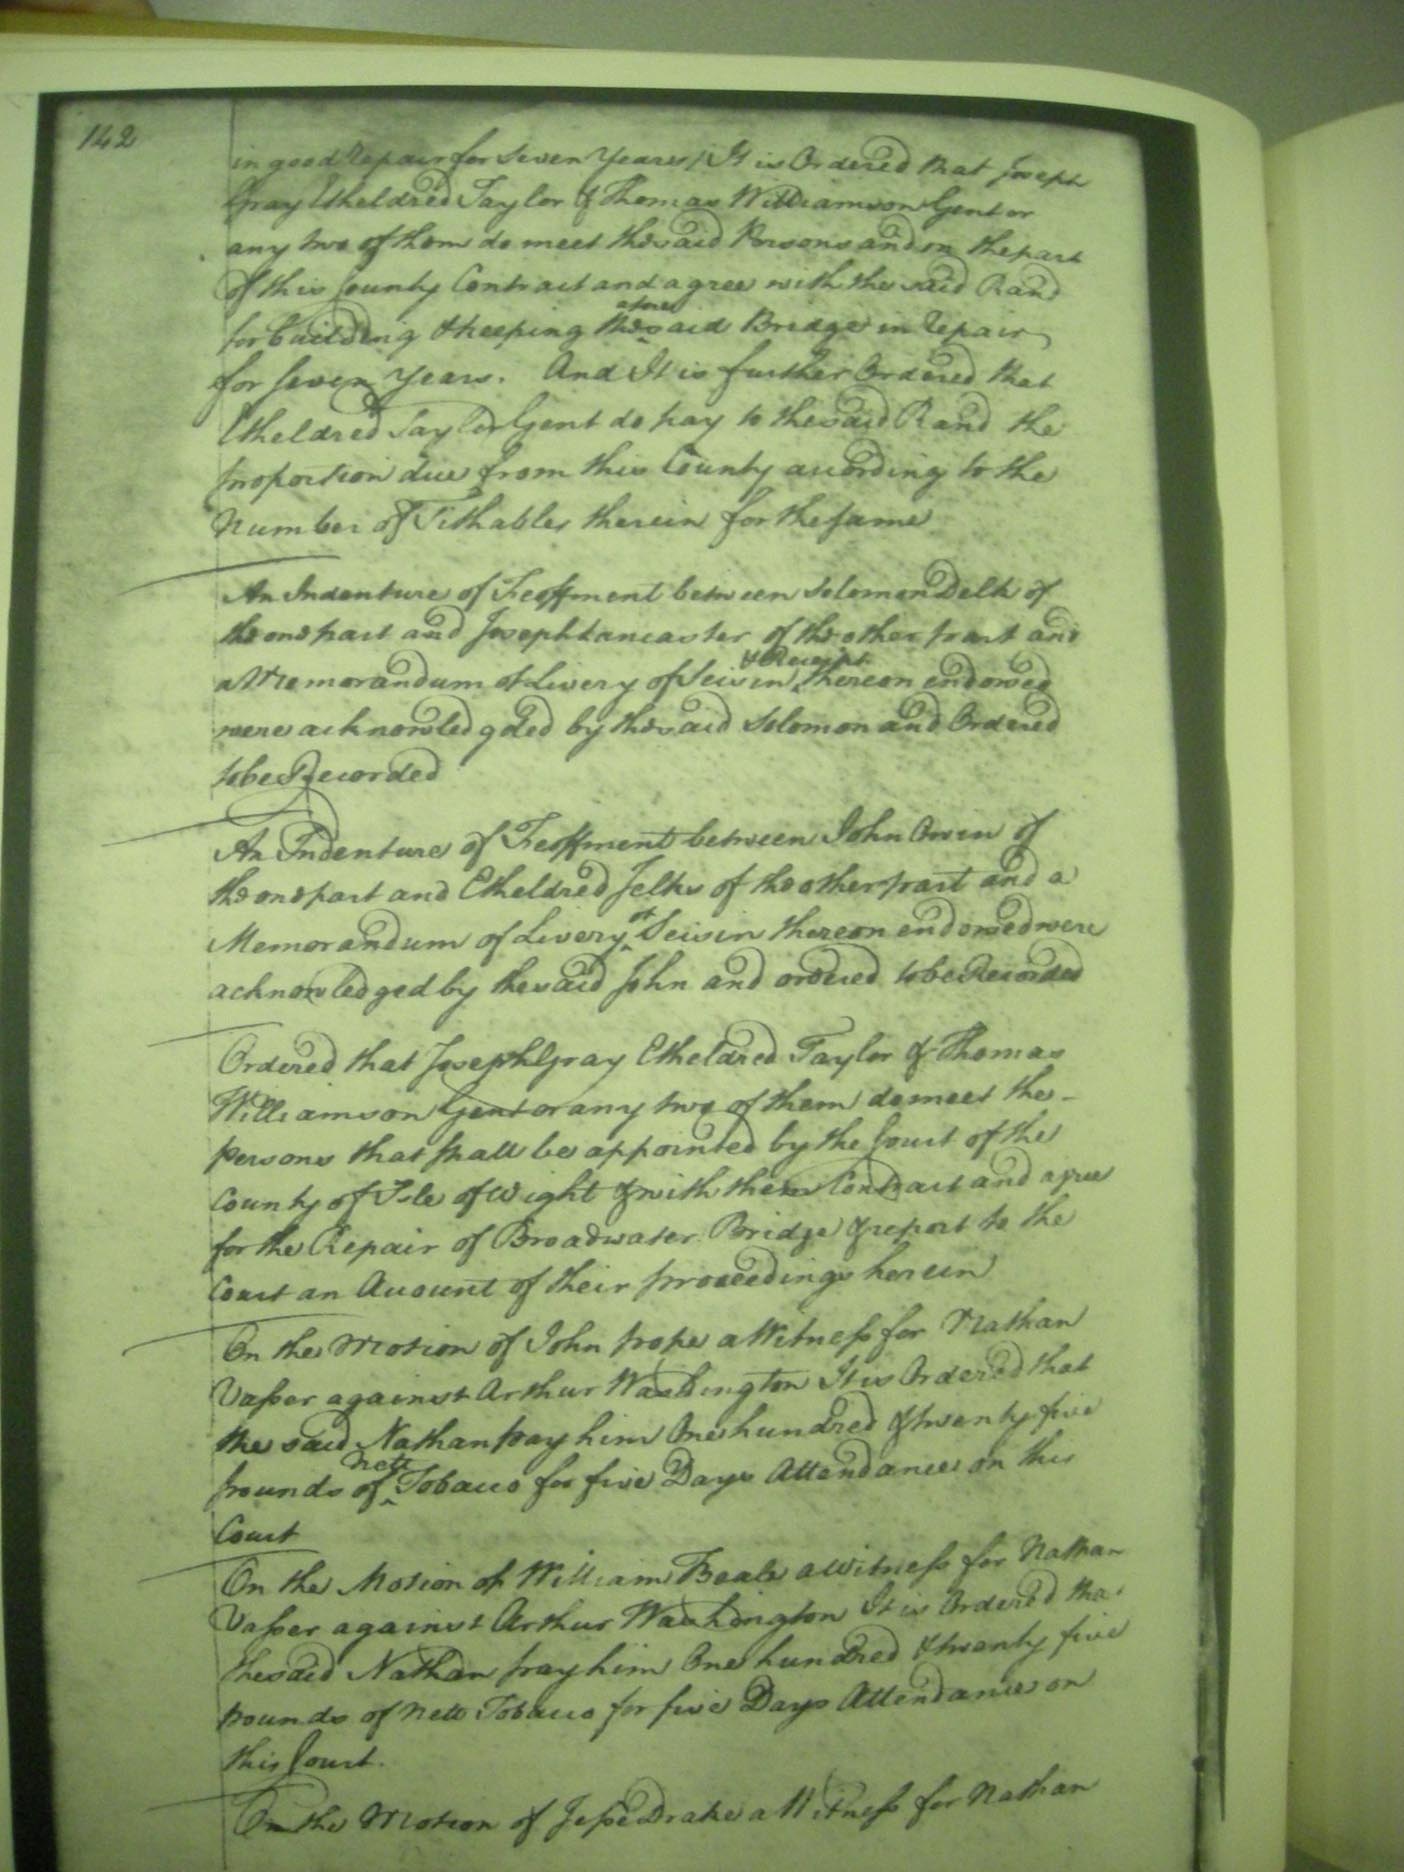 142
in good Repair for Seven Years; It is Ordered that Joseph
Gray Etheldred Taylor & Thomas Williamson Gent or
any two of them do meet the said Persons and on the part
of this County Contract and agree with the said Rand
for building & keeping the afores said Bridge in Repair
for Seven Years. And It is further Ordered that
Etheldred Taylor Gent do pay to the said Rand the
proportion due from this County according to the
Number of Tithables therein for the same
An Indenture of Feoffment between Solomon Delk of
the one part and Joseph Lancaster of the other part and
a Memorandum of Livery of Seisin & Receipt thereon endorsed
were acknowledgded by the said Solomon and Ordered
to be Recorded
An Indenture of Feoffment between John Owen of
the one part and Etheldred Jelks of the other part and a
Memorandum of Livery of Seisin thereon endorsed were
acknowledged by the said John and ordered to be Recorded
Ordered that Joseph Gray Etheldred Taylor & Thomas
Williamson Gent or any two of them do meet the
persons that shall be appointed by the Court of the
County of Isle of Wight & with them Contract and agree
for the Repair of Broadwater Bridge & report to the
Court an Account of their proceedings herein
On the Motion of John pope a Witness for Nathan
Vasser against Arthur Washington It is Ordered that
the said Nathan pay him One hundred & twenty five
pounds of nett Tobacco for five Days Attendance on this
Court
On the Motion of William Beale a witness for Nathan
Vasser against Arthur Washington It is Ordered that
the said Nathan pay him One hundred & twenty five
pounds of nett Tobacco for five Days Attendance on
this Court.
On the Motion of Jesse Drake a Witness for Nathan